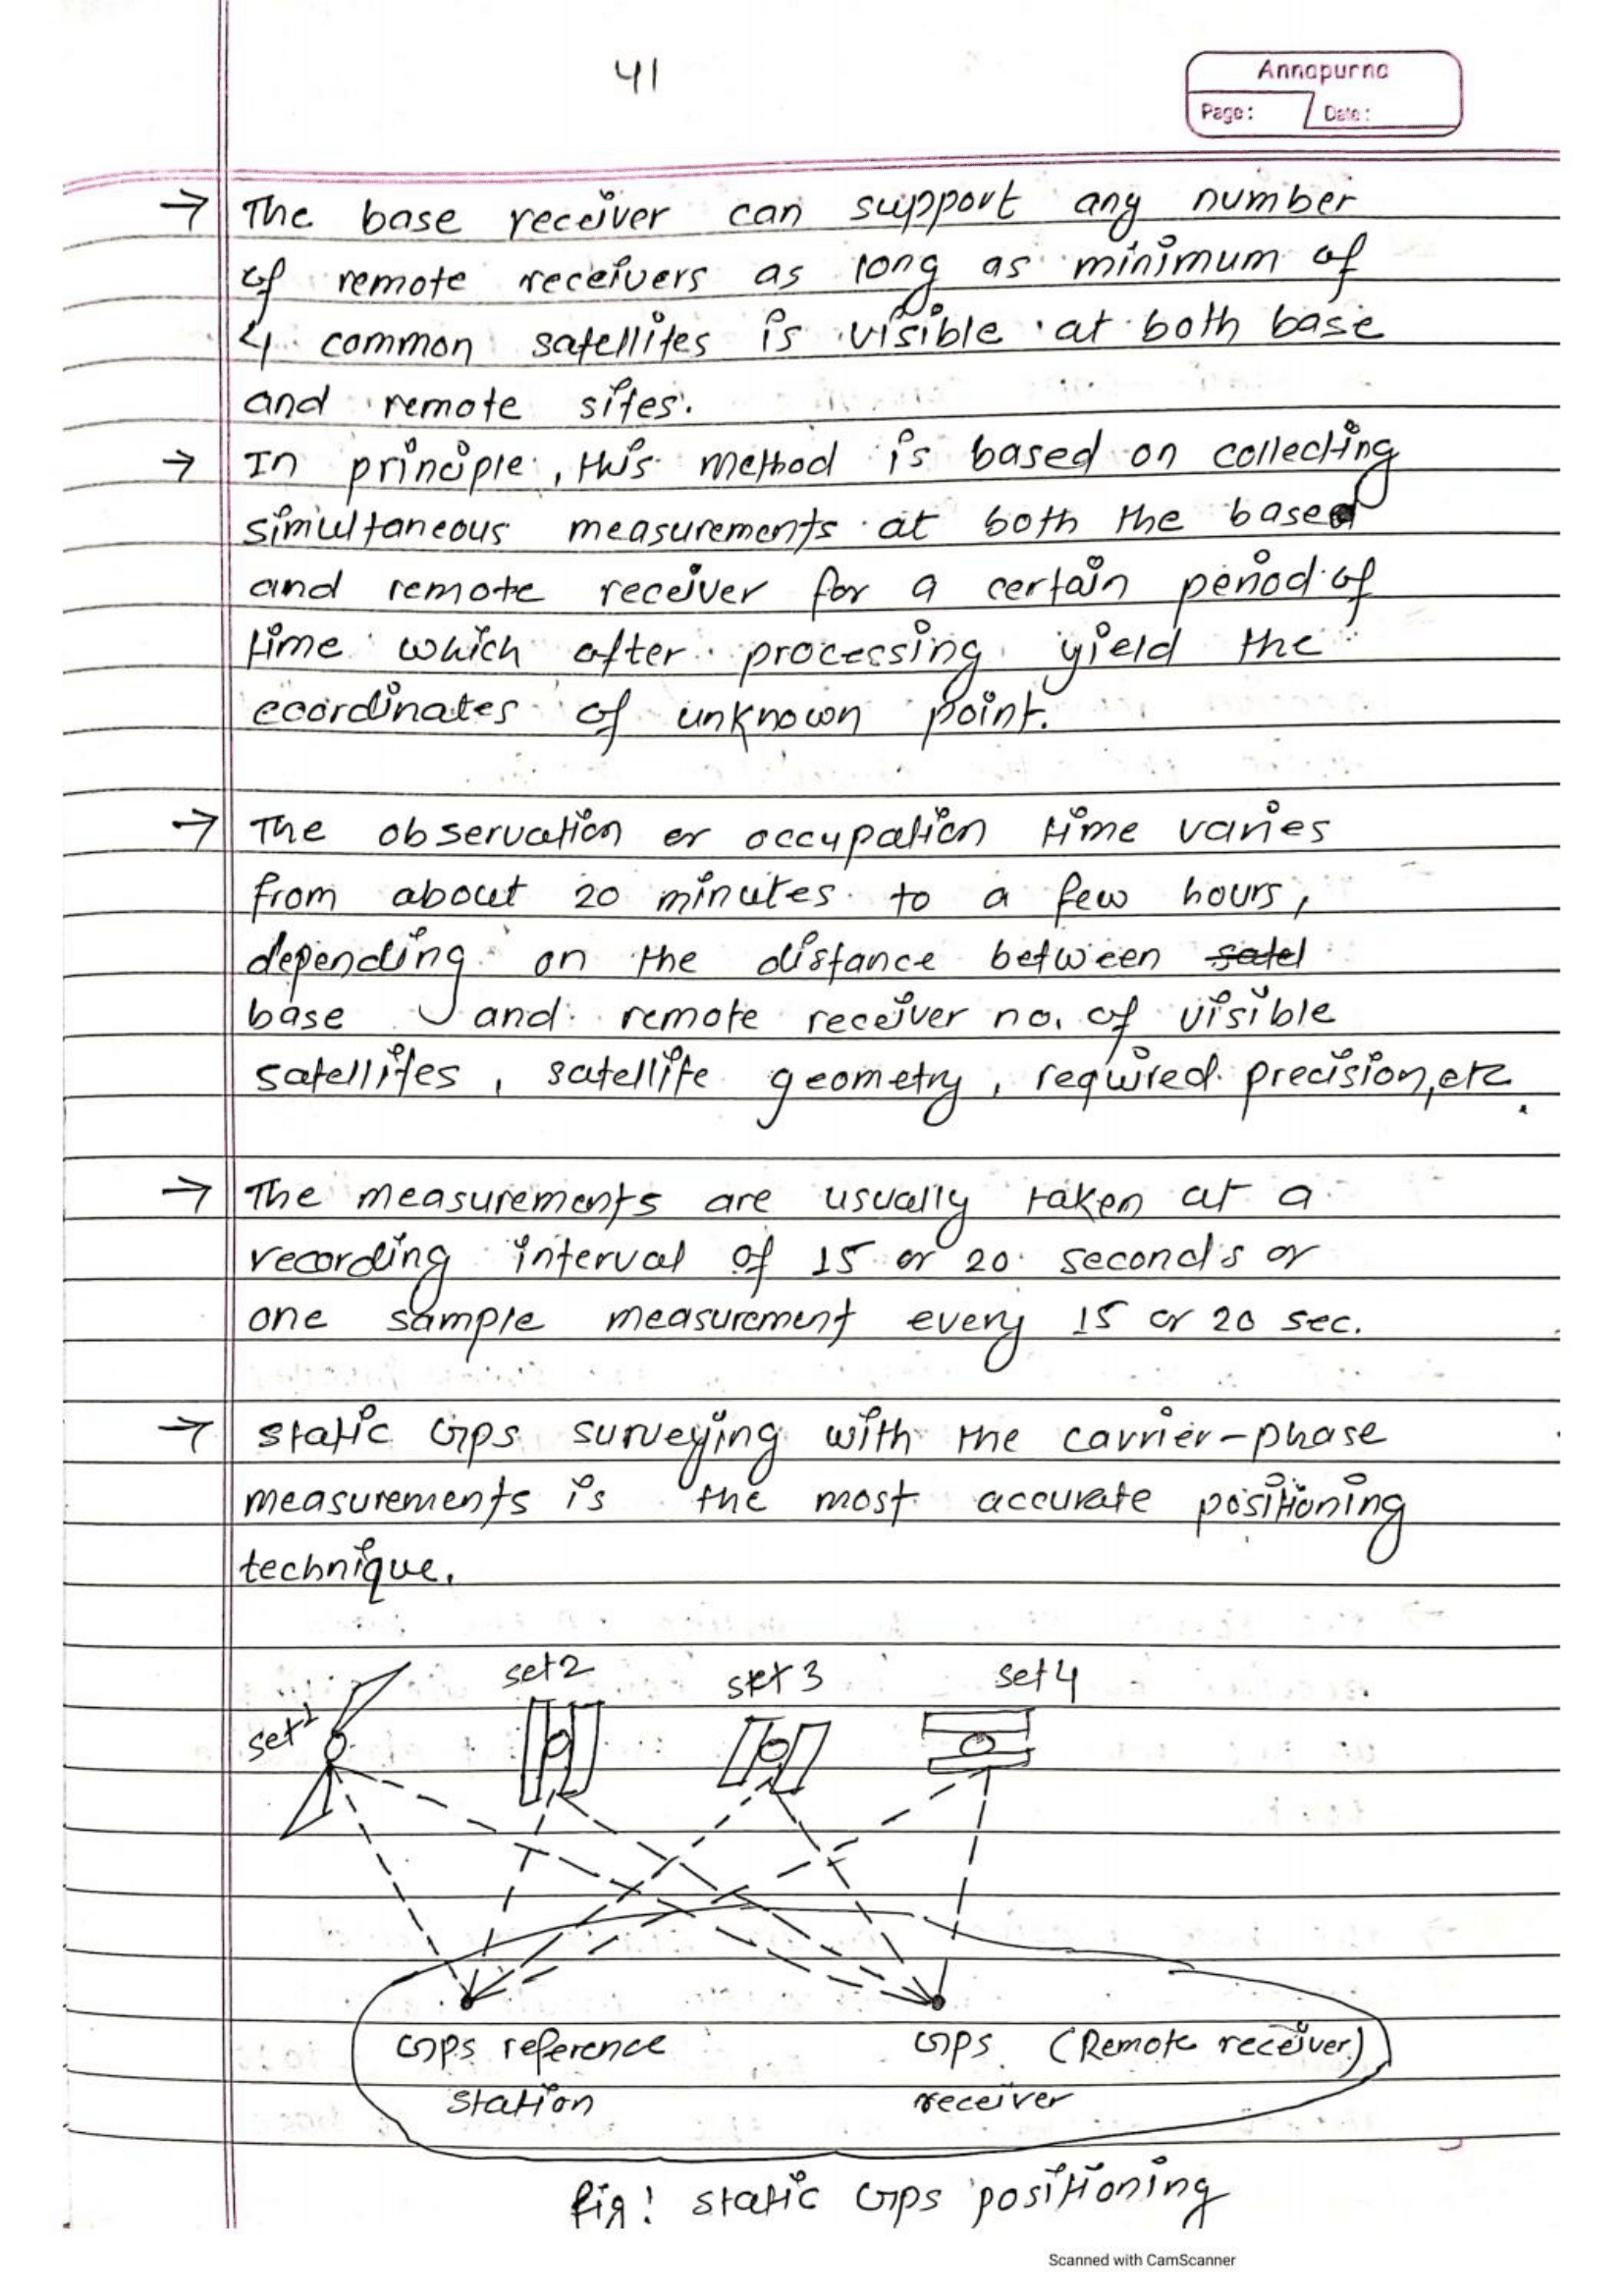 41
Annapurna
Page: Date:
→ The base receiver can support any number
of remote receivers as long as minimum of
4 common satellites is visible at both base
and remote sites.
→ In principle, this method is based on collecting
simultaneous measurements at both the base
and remote receiver for a certain period of
time which after processing yield the
coordinates of unknown point.
→ The observation or occupation time varies
from about 20 minutes to a few hours,
depending on the distance between satel
base and remote receiver no. of visible
satellites, satellite geometry, required precision, etc.
→ The measurements are usually taken at a
recording interval of 15 or 20 seconds or
one sample measurement every 15 or 20 sec.
→ static GPS surveying with the carrier-phase
measurements is the most accurate positioning
technique.
set1 set2 set3 set4
GPS reference GPS (Remote receiver)
station receiver
fig! static GPS positioning
Scanned with CamScanner